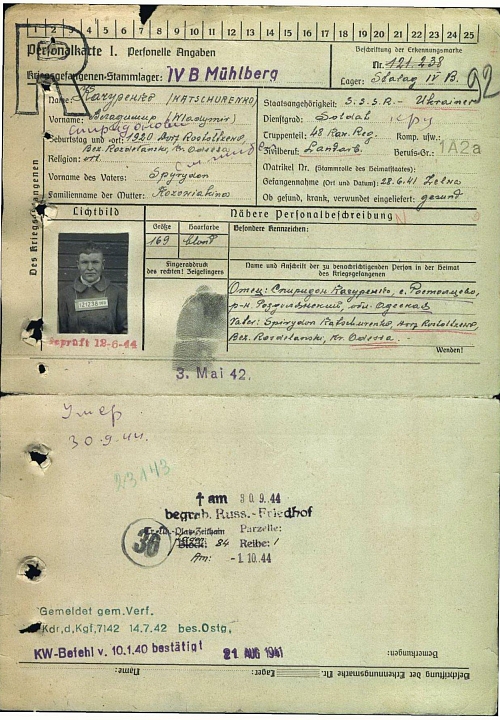 1 2 3 4 5 6 7 8 9 10 11 12 13 14 15 16 17 18 19 20 21 22 23 24 25
R
92
Personalkarte I. Personelle Angaben
Kriegsgefangenen-Stammlager: IV B Mühlberg
Beschriftung der Erkennungsmarke
Nr. 121.238
Lager: Stalag IV B.
Des Kriegsgefangenen
Name: Качуренко (KATSCHURENKO)
Vorname: Владимир (Wladymir)
Спиридонович
Geburtstag und -ort: 1920 Dorf
Bez. Rosdelanski, Kr. Odessa
Religion: ort.
Vorname des Vaters: Spyrydon
Familienname der Mutter:
Staatsangehörigkeit: S.S.S.R. - Ukrainer
Dienstgrad: Soldat
Truppenteil: 48 Kan. Reg. Komp. usw.:
Zivilberuf: Landarb. Berufs-Gr.: 1A2a
Matrikel Nr. (Stammrolle des Heimatstaates):
Gefangennahme (Ort und Datum): 28.6.41
Ob gesund, krank, verwundet eingeliefert: gesund
Lichtbild
Nähere Personalbeschreibung
Größe
Haarfarbe
169
blond
Besondere Kennzeichen:
Fingerabdruck
des rechten! Zeigefingers
Name und Anschrift der zu benachrichtigenden Person in der Heimat
des Kriegsgefangenen
121238
Отец: Спиридон Качуренко, с.
р-н Розделянский, обл. Одесская
Vater: Spirydon Katschurenko, Dorf
Bez. Rozdelanski, Kr. Odessa.
Wenden!
Geprüft 12-6-44
3. Mai 42.
Умер
30.9.44.
23143
† am 30.9.44
begrab. Russ.-Friedhof
36
Parzelle:
Block: 84 Reihe: 1
Am: -1.10.44
Gemeldet gem. Verf.
Kdr.d.Kgf. 7142 14.7.42 bes. Ostg.
KW-Befehl v. 10.1.40 bestätigt 21. AUG 1941
Bemerkungen:
Beschriftung der Erkennungsmarke Nr. Lager: Name: